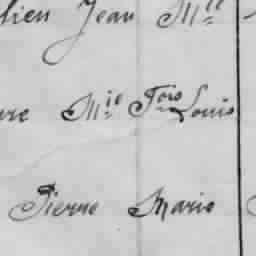 lien Jean M.le
re M.ie F.ois Louis
Pierre Marie